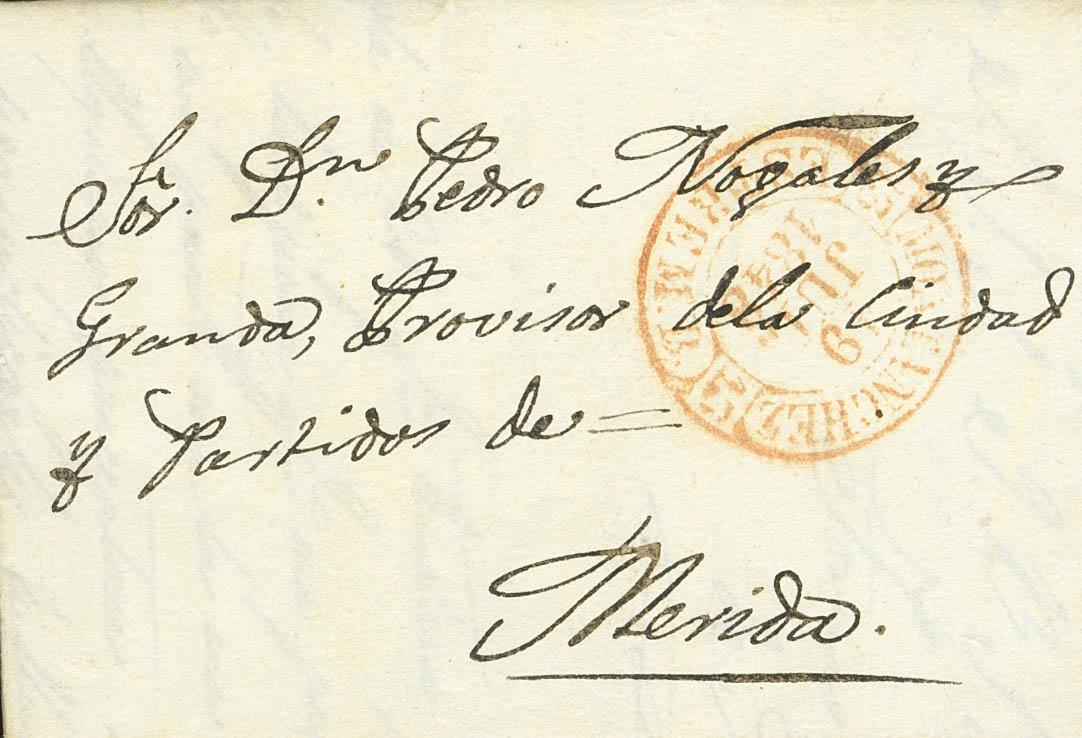 Sor. Dn. Pedro Nogales y
Granda, Provisor dela Ciudad
y Partidos de =
Merida.
9
JUL
1846